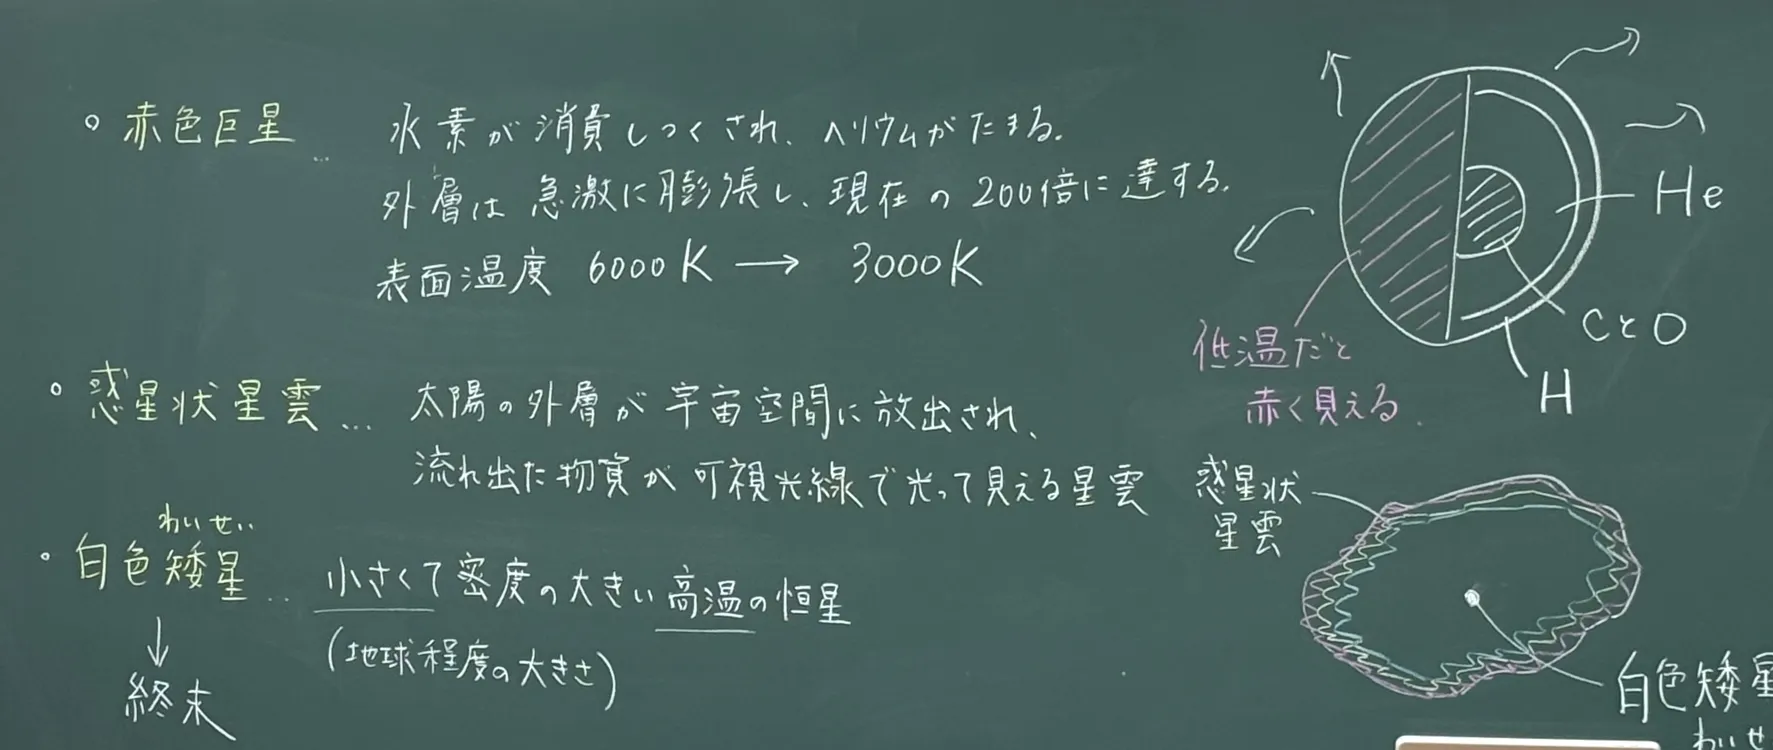 。赤色巨星… 水素が消費しつくされ、ヘリウムがたまる。
外層は急激に膨張し、現在の200倍に達する。
表面温度 6000K → 3000K
He
CとO
H
低温だと
赤く見える。
。惑星状星雲… 太陽の外層が宇宙空間に放出され、
流れ出た物質が可視光線で光って見える星雲
わいせい
。白色矮星… 小さくて密度の大きい高温の恒星
(地球程度の大きさ)
↓
終末
惑星状
星雲
白色矮星
わいせ